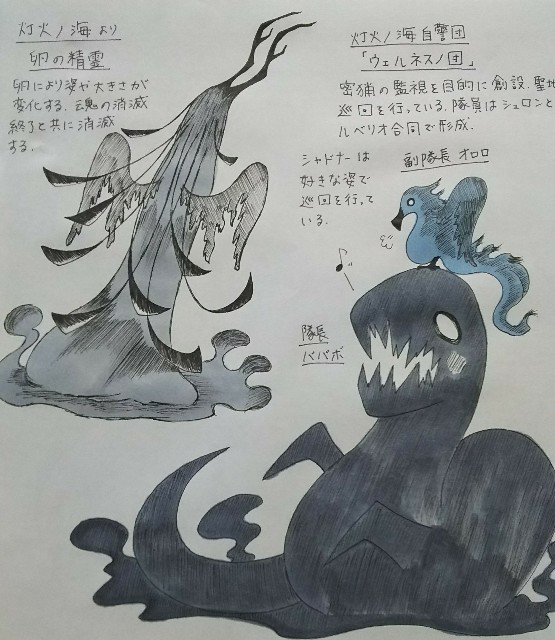 灯火ノ海より
卵の精霊
卵により姿や大きさが
変化する。魂の消滅
終了と共に消滅
する.
灯火ノ海自警団
「ウェルネスノ団」
密猟の監視を目的に創設.聖地
巡回を行っている.隊員はシュロンと
ルベリオ合同で形成.
シャドナーは
好きな姿で
巡回を行って
いる.
副隊長 オロロ
隊長
ババボ